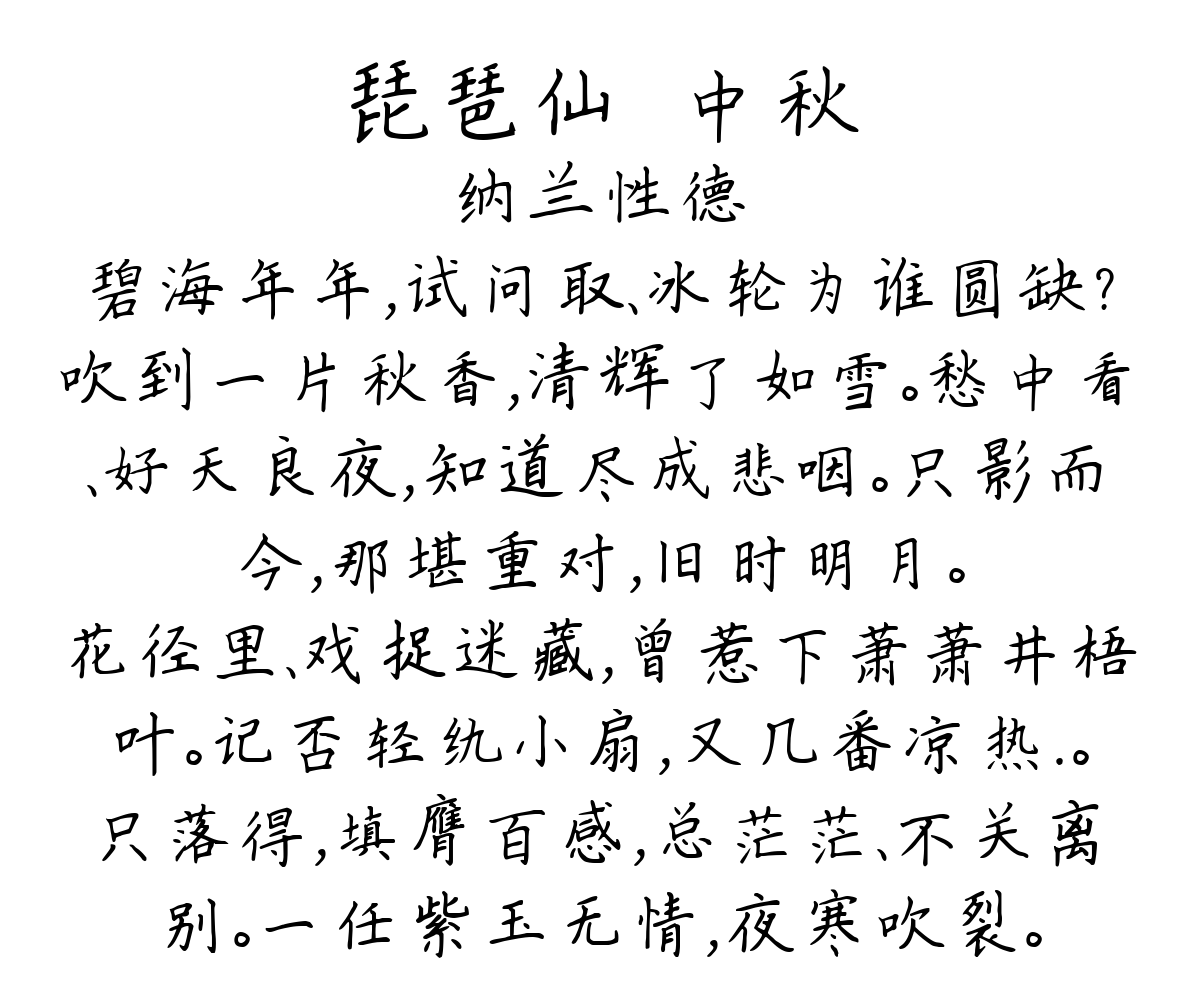 琵琶仙 中秋
纳兰性德
碧海年年,试问取、冰轮为谁圆缺?
吹到一片秋香,清辉了如雪。愁中看
、好天良夜,知道尽成悲咽。只影而
今,那堪重对,旧时明月。
花径里、戏捉迷藏,曾惹下萧萧井梧
叶。记否轻纨小扇,又几番凉热.。
只落得,填膺百感,总茫茫、不关离
别。一任紫玉无情,夜寒吹裂。